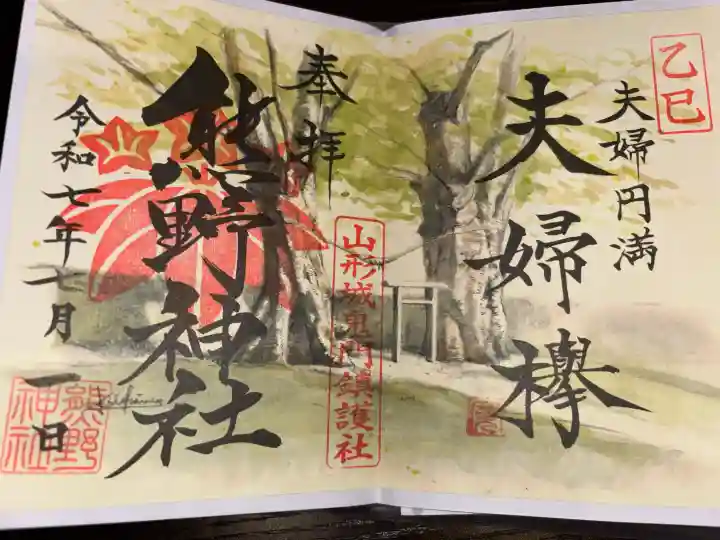 乙巳
夫婦円満
夫婦欅
奉拝
山形城鬼門鎮護社
熊野神社
令和七年七月一日
熊野
神社